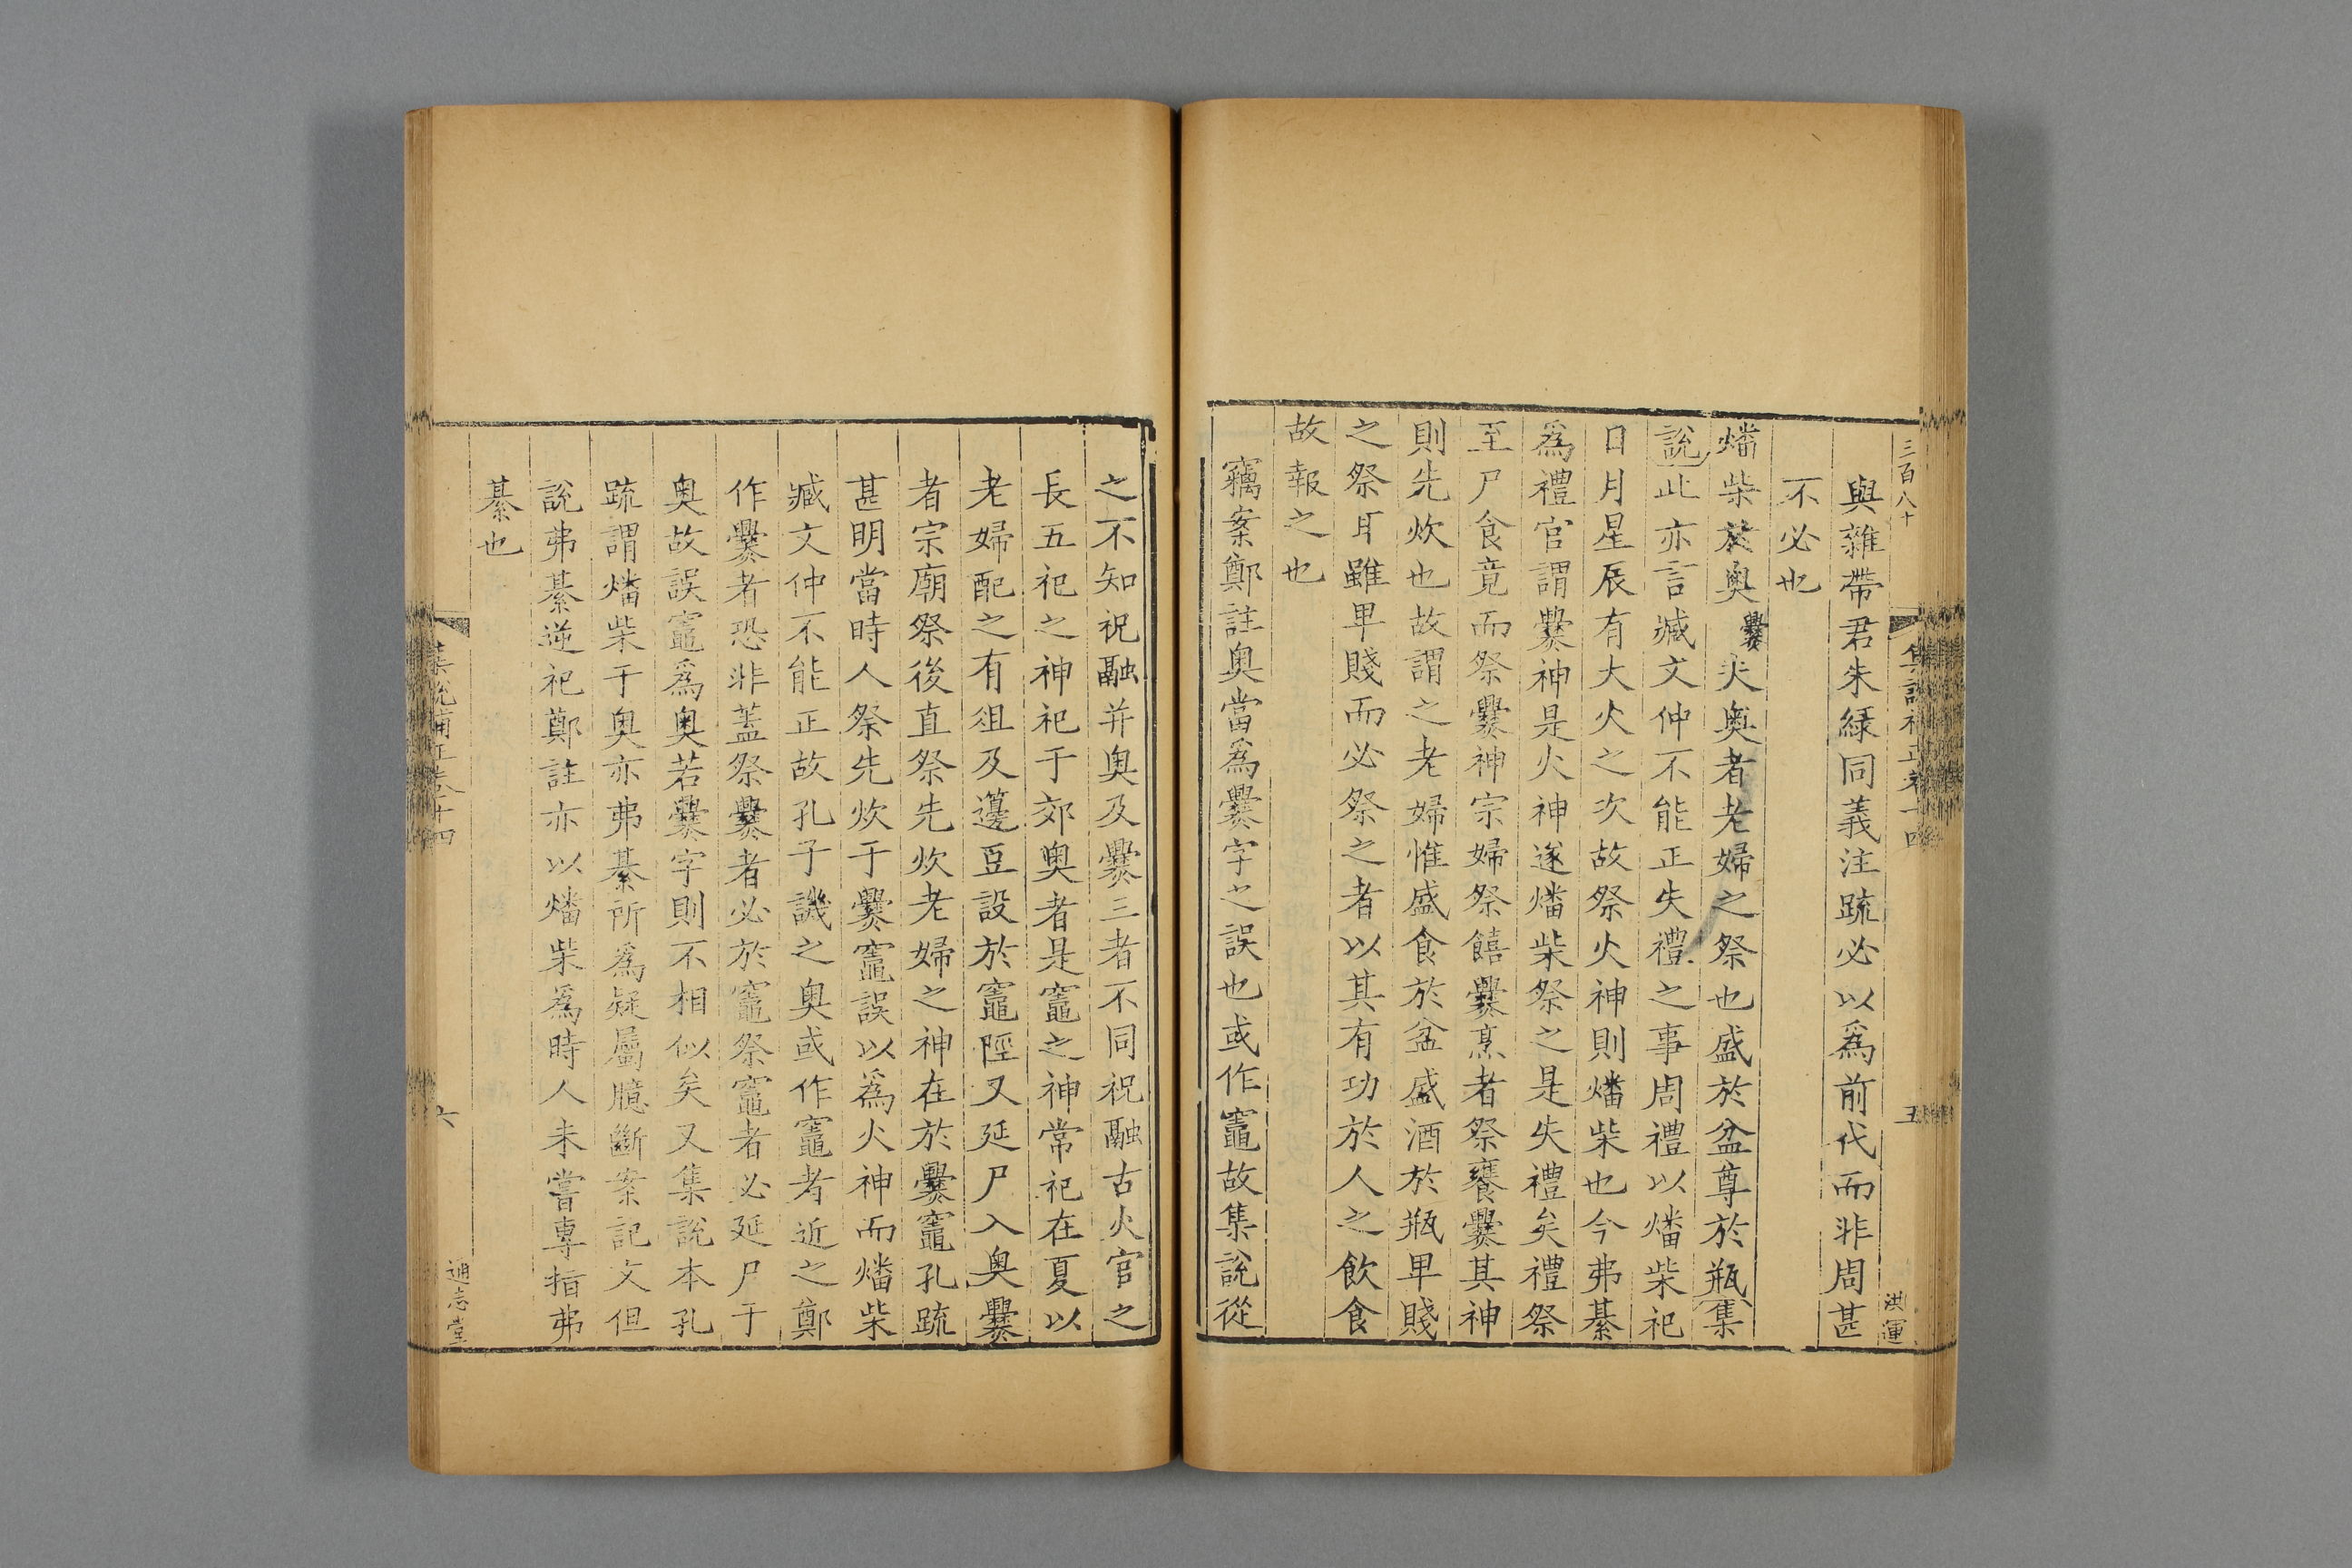 三百八十
洪運
與雜帶君朱綠同義注疏必以爲前代而非周甚
不必也
燔柴於奧爨夫奧者老婦之祭也盛於盆尊於瓶集
說此亦言臧文仲不能正失禮之事周禮以燔柴祀
日月星辰有大火之次故祭火神則燔柴也今弗綦
爲禮官謂爨神是火神遂燔柴祭之是失禮矣禮祭
至尸食竟而祭爨神宗婦祭饎爨烹者祭饔爨其神
則先炊也故謂之老婦惟盛食於盆盛酒於瓶卑賤
之祭耳雖卑賤而必祭之者以其有功於人之飲食
故報之也
竊案鄭註奧當爲爨字之誤也或作竈故集說從
之不知祝融并奧及爨三者不同祝融古火官之
長五祀之神祀于郊奧者是竈之神常祀在夏以
老婦配之有俎及籩豆設於竈陘又延尸入奧爨
者宗廟祭後直祭先炊老婦之神在於爨竈孔疏
甚明當時人祭先炊于爨竈誤以爲火神而燔柴
臧文仲不能正故孔子譏之奧或作竈者近之鄭
作爨者恐非蓋祭爨者必於竈祭竈者必延尸于
奧故誤竈爲奧若爨字則不相似矣又集說本孔
疏謂燔柴于奧亦弗綦所爲疑屬臆斷案記文但
說弗綦逆祀鄭註亦以燔柴爲時人未嘗專指弗
綦也
集說補正卷十四
六
通志堂